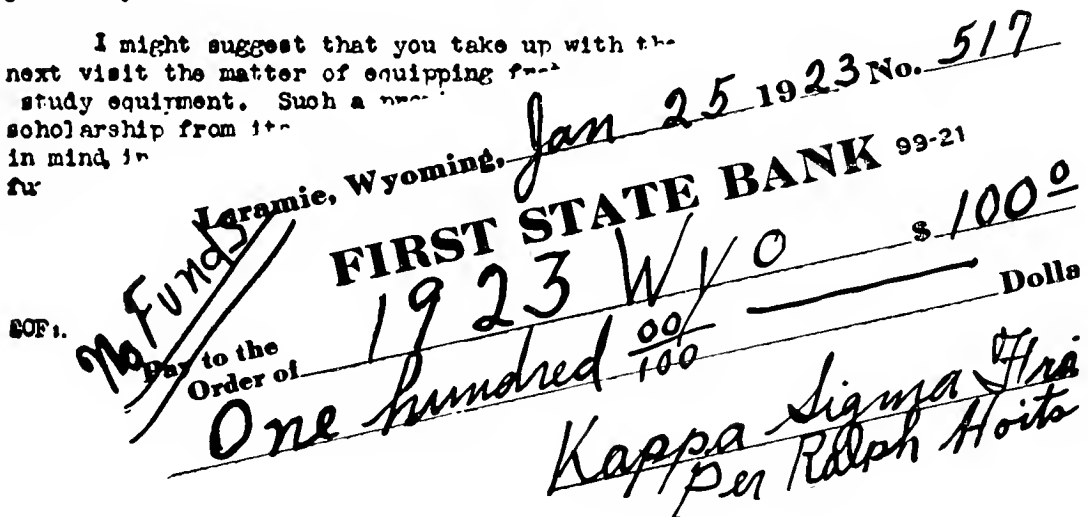 I might suggest that you take up with the
next visit the matter of equipping
study equirment. Such a
soholarship from
in mind, in
fur
Laramie, Wyoming, Jan 25 1923 No. 517
FIRST STATE BANK 99-21
No Funds
Pay to the
Order of 1923 Wyo $ 100 0
One hundred 00/100 Dolla
Kappa Sigma
Per Ralph Hoits